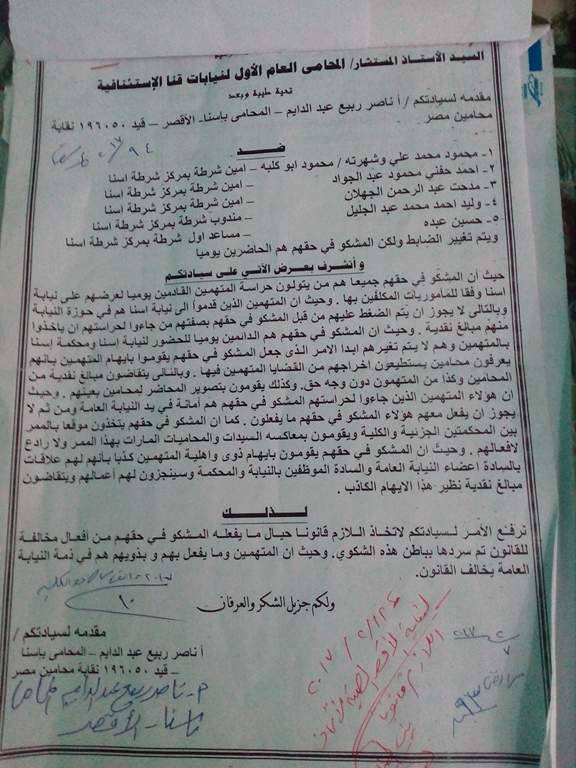 السيد الأستاذ المستشار/ المحامى العام الأول لنيابات قنا الإستئنافية
تحية طيبة وبعد
مقدمه لسيادتكم / أ ناصر ربيع عبد الدايم – المحامى باسنا- الأقصر – قيد ١٩٦٠٥٠ نقابة
محامين مصر
ضد
١- محمود محمد علي وشهرته / محمود ابو كلبه – امين شرطة بمركز شرطة اسنا
٢- احمد حفني محمود عبد الجواد – امين شرطة بمركز شرطة اسنا
٣- مدحت عبد الرحمن الجهلان – امين شرطة بمركز شرطة اسنا
٤- وليد احمد محمد عبد الجليل – مندوب شرطة بمركز شرطة اسنا
٥- حسين عبده – مساعد اول شرطة بمركز شرطة اسنا
ويتم تغيير الضابط ولكن المشكو في حقهم هم الحاضرين يوميا
وأتشرف بعرض الآتي على سيادتكم
حيث أن المشكو في حقهم جميعا هم من يتولون حراسة المتهمين القادمين يوميا لعرضهم على نيابة
اسنا وفقا للمأموريات المكلفين بها . وحيث ان المتهمين الذين قدموا الى نيابة اسنا هم في حوزة النيابة
وبالتالى لا يجوز ان يتم الضغط عليهم من قبل المشكو في حقهم بصفتهم من جاءوا لحراستهم ان ياخذوا
منهم مبالغ نقدية . وحيث ان المشكو في حقهم هم الدايمين يوميا للحضور لنيابة اسنا ومحكمة إسنا
بالمتهمين وهم لا يتم تغيرهم ابدا الامر الذى جعل المشكو في حقهم يقوموا بايهام المتهمين بانهم
يعرفون محامين يستطيعون اخراجهم من القضايا المتهمين فيها . وبالتالى يتقاضون مبالغ نقدية من
المحامين وكذا من المتهمون دون وجه حق. وكذلك يقومون بتصوير المحاضر لمحامين بعينهم . وحيث
ان هولاء المتهمين الذين جاءوا لحراستهم المشكو في حقهم هم أمانة في يد النيابة العامة ومن ثم لا
يجوز ان يفعل معهم هولاء المشكو في حقهم ما يفعلون . كما ان المشكو في حقهم يتخذون موقعا بالممر
بين المحكمتين الجزئية والكلية ويقومون بمعاكسه السيدات والمحاميات المارات بهذا الممر ولا رادع
لافعالهم . وحيث ان المشكو في حقهم يقومون بايهام ذوى وأهلية المتهمين كذبا بأنهم لهم علاقات
بالسادة اعضاء النيابة العامة والسادة الموظفين بالنيابة والمحكمة وسينجزون لهم اعمالهم ويتقاضون
مبالغ نقدية نظير هذا الايهام الكاذب.
لذلك
نرفع الأمر لسيادتكم لاتخاذ اللازم قانونا حيال ما يفعله المشكو في حقهم من أفعال مخالفة
للقانون تم سردها بباطن هذه الشكوي. وحيث ان المتهمين وما يفعل بهم و بذويهم هم في ذمة النيابة
العامة يخالف القانون.
ولكم جزيل الشكر والعرفان
مقدمه لسيادتكم /
أ ناصر ربيع عبد الدايم – المحامى باسنا
– قيد ١٩٦٠٥٠ نقابة محامين مصر
م. ناصر ربيع عبد الدايم المحامى
باسنا - الأقصر